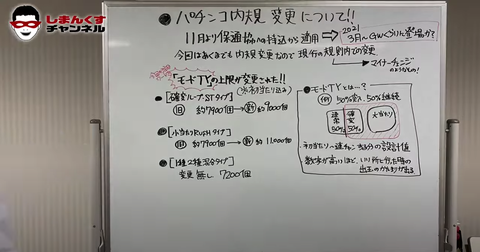 しまんくす
チャンネル
◉パチンコ内規変更について!!
11月より保通協への持込から適用 → 2021
3月〜GWぐらいに登場か?
今回はあくまでも内規変更なので現行の規則内での変更
→マイナーチェンジ
のようなもの!
「モードTYの上限が変更された!!
(※初当たり込み)
●[確変ループ・STタイプ]
旧 約7900個 → 新 約9000個
●[小当たりRUSHタイプ]
旧 約7900個 → 新 約11,000個
●[1種2種混合タイプ]
変更無し 7200個
●モードTYとは…?
例 50%突入、50%継続
通常50%
確変50%
大当たり
・初当たり〜連チャン当分の設計値
数字が高いほど、いい所に行った時の
出玉のかたまりが出る